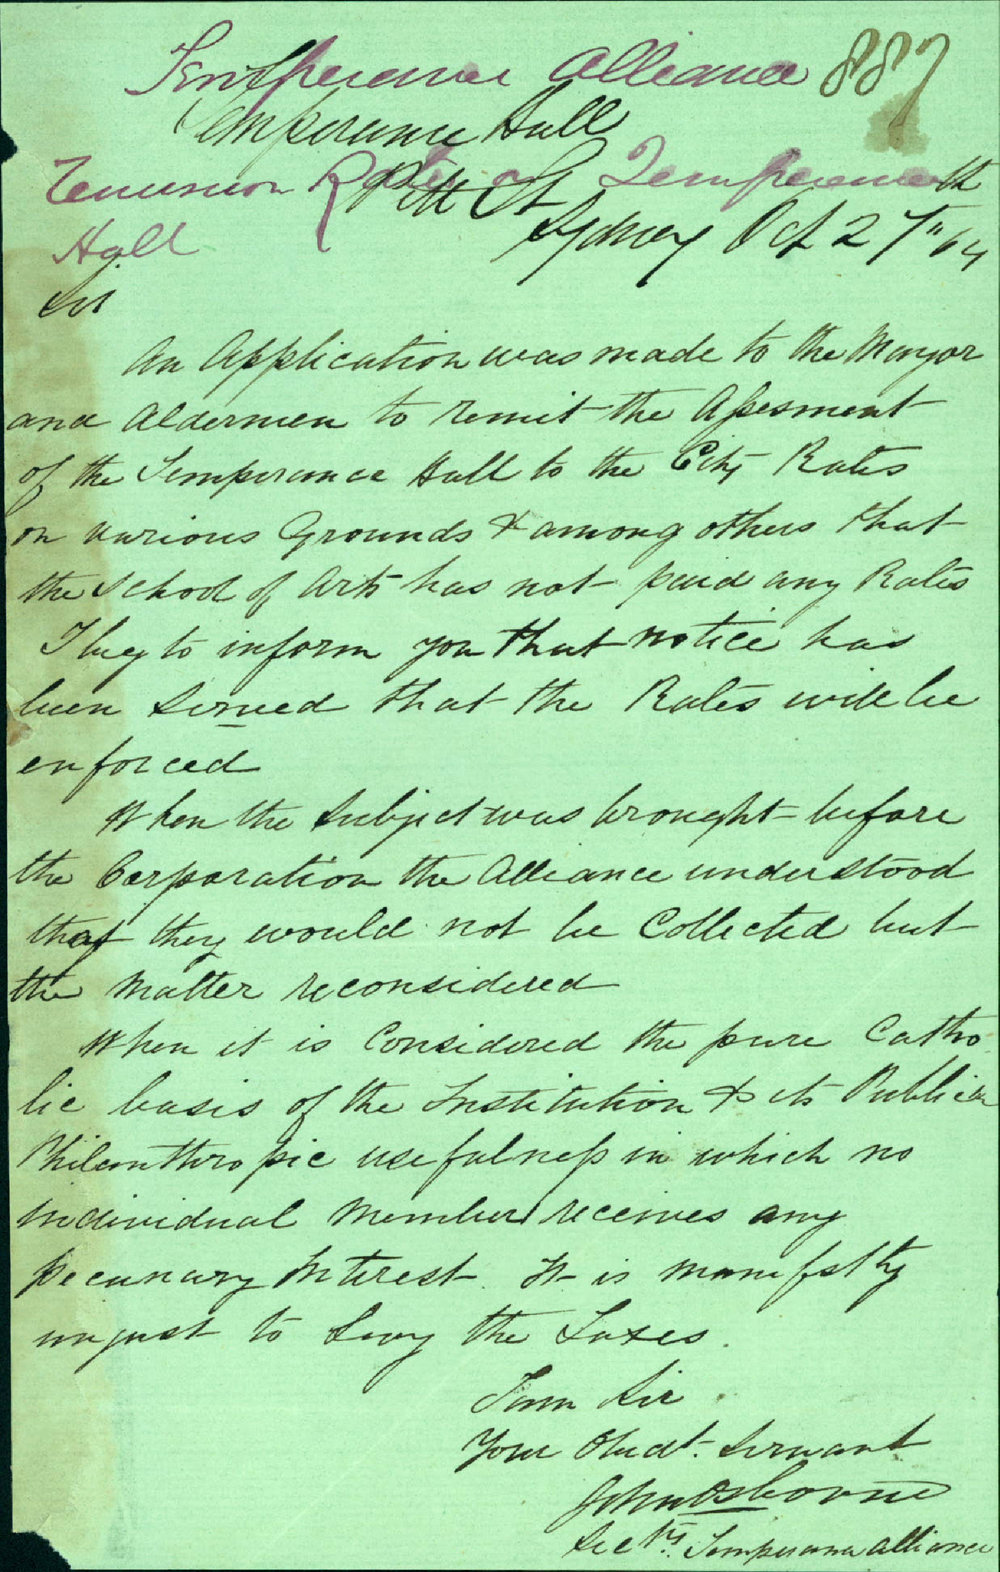 Temperance Alliance 887
Temperance Hall
Remission Rates on Temperance
Pitt St
Hall
Sydney Oct 27th 64
Sir
An Application was made to the Mayor
and Aldermen to remit the Assesment
of the Temperance Hall to the City Rates
on various Grounds & among others that
the School of Arts has not paid any Rates
I beg to inform you that notice has
been served that the Rates will be
enforced
When the Subject was brought before
the Corporation the Alliance understood
that they would not be Collected but
the Matter reconsidered
When it is Considered the pure Catho
lic basis of the Institution & its Public
Philanthropic usefulness in which no
individual Member receives any
pecunary Interest. It is manifstly
unjust to Levy the Taxes.
I am Sir
Your Obedt. Servant
John Osborne
Secty. Temperance Alliance